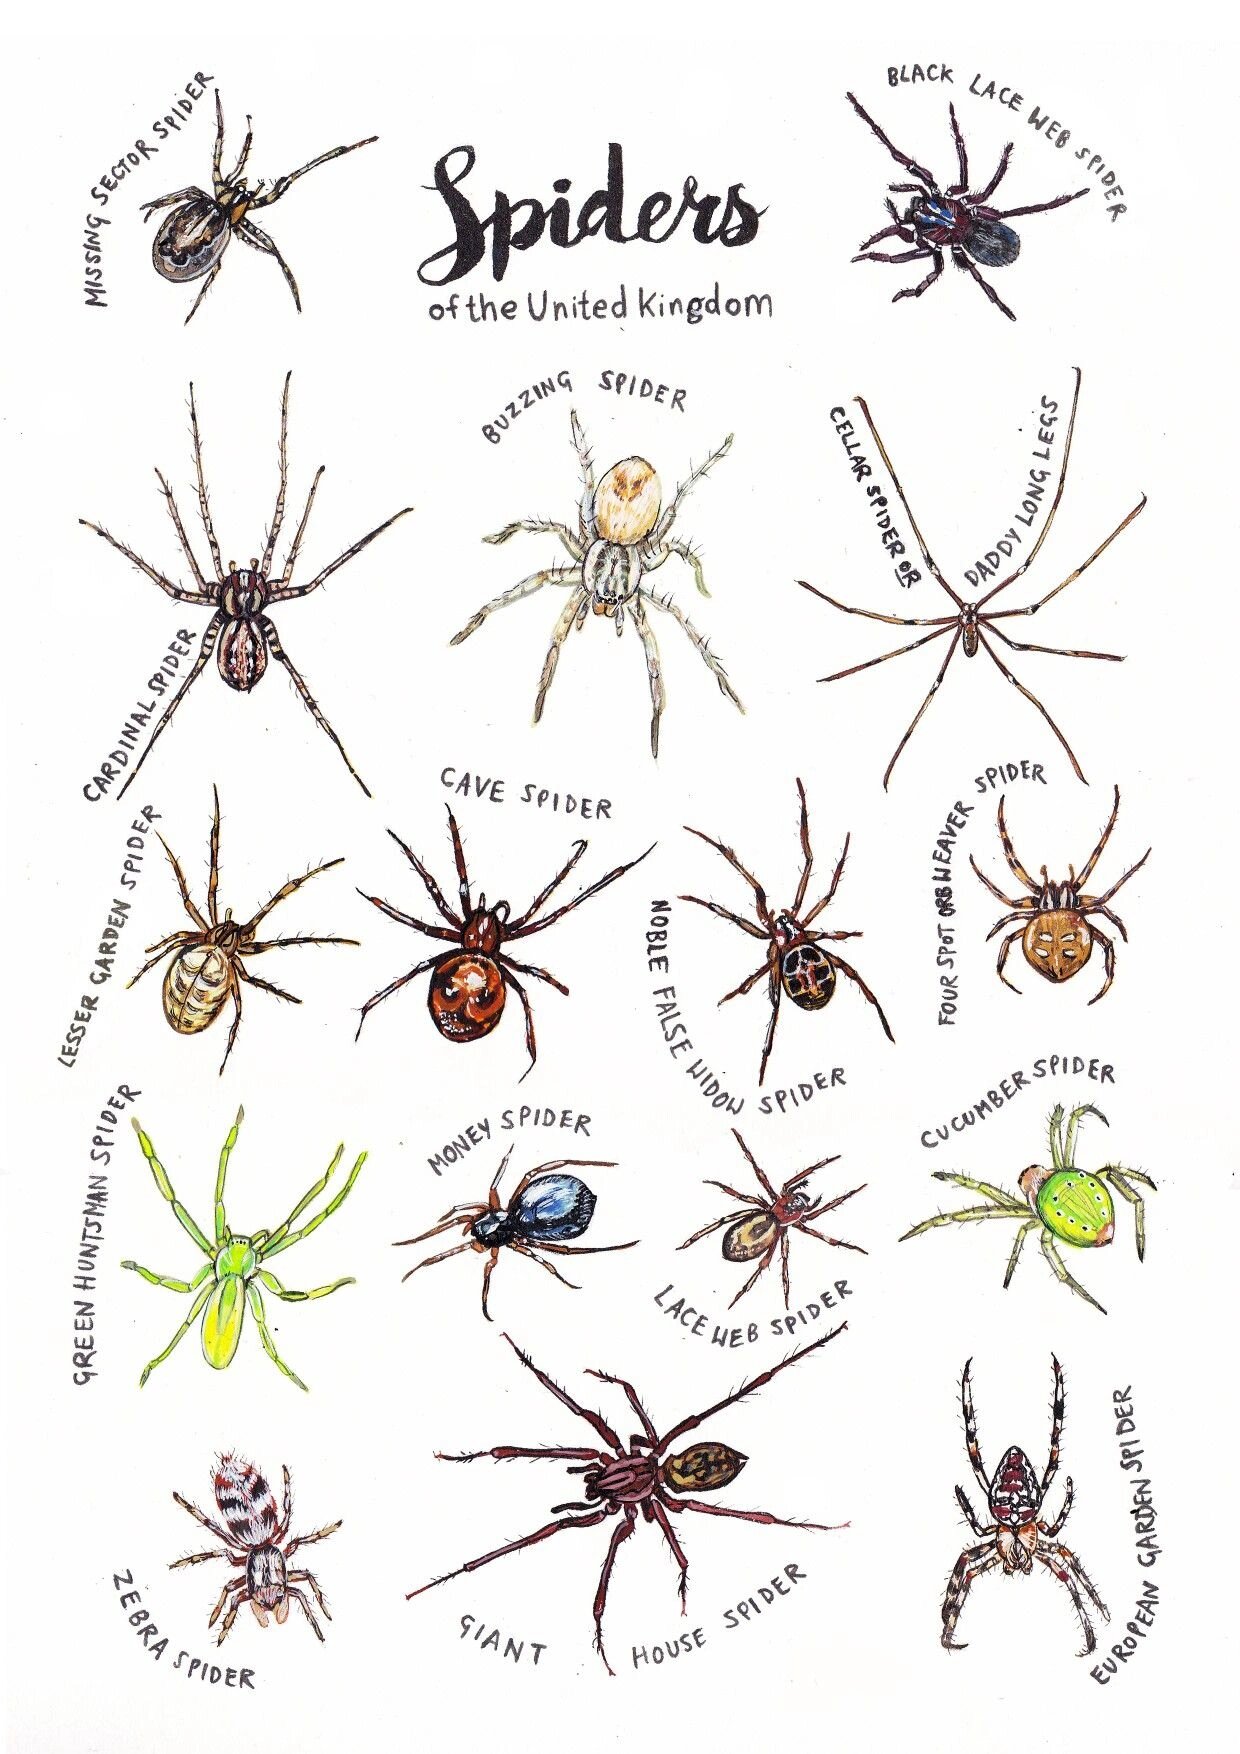 MISSING SECTOR SPIDER
Spiders
of the United Kingdom
BLACK LACE WEB SPIDER
CARDINAL SPIDER
BUZZING SPIDER
CELLAR SPIDER OR
DADDY LONG LEGS
LESSER GARDEN SPIDER
CAVE SPIDER
NOBLE FALSE WIDOW SPIDER
FOUR SPOT ORB WEAVER SPIDER
GREEN HUNTSMAN SPIDER
MONEY SPIDER
LACE WEB SPIDER
CUCUMBER SPIDER
ZEBRA SPIDER
GIANT HOUSE SPIDER
EUROPEAN GARDEN SPIDER